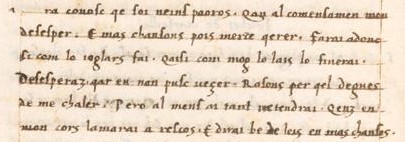 ra conosc qe soi neinis paoros. Qan al comensamen mou
desesper. E mas chansons pois merce qerer. Farai adonc
si com lo ioglars fai. Qaisi com mog lo lais lo finerai.
Desesperaz. qar eu nan pusc vezer. Rasons per qel degnes
de me chaler. Pero al mens ai tant retendrai. Qenz en
mon cors lamarai a rescos. E dirai be de leis en mas chansos.